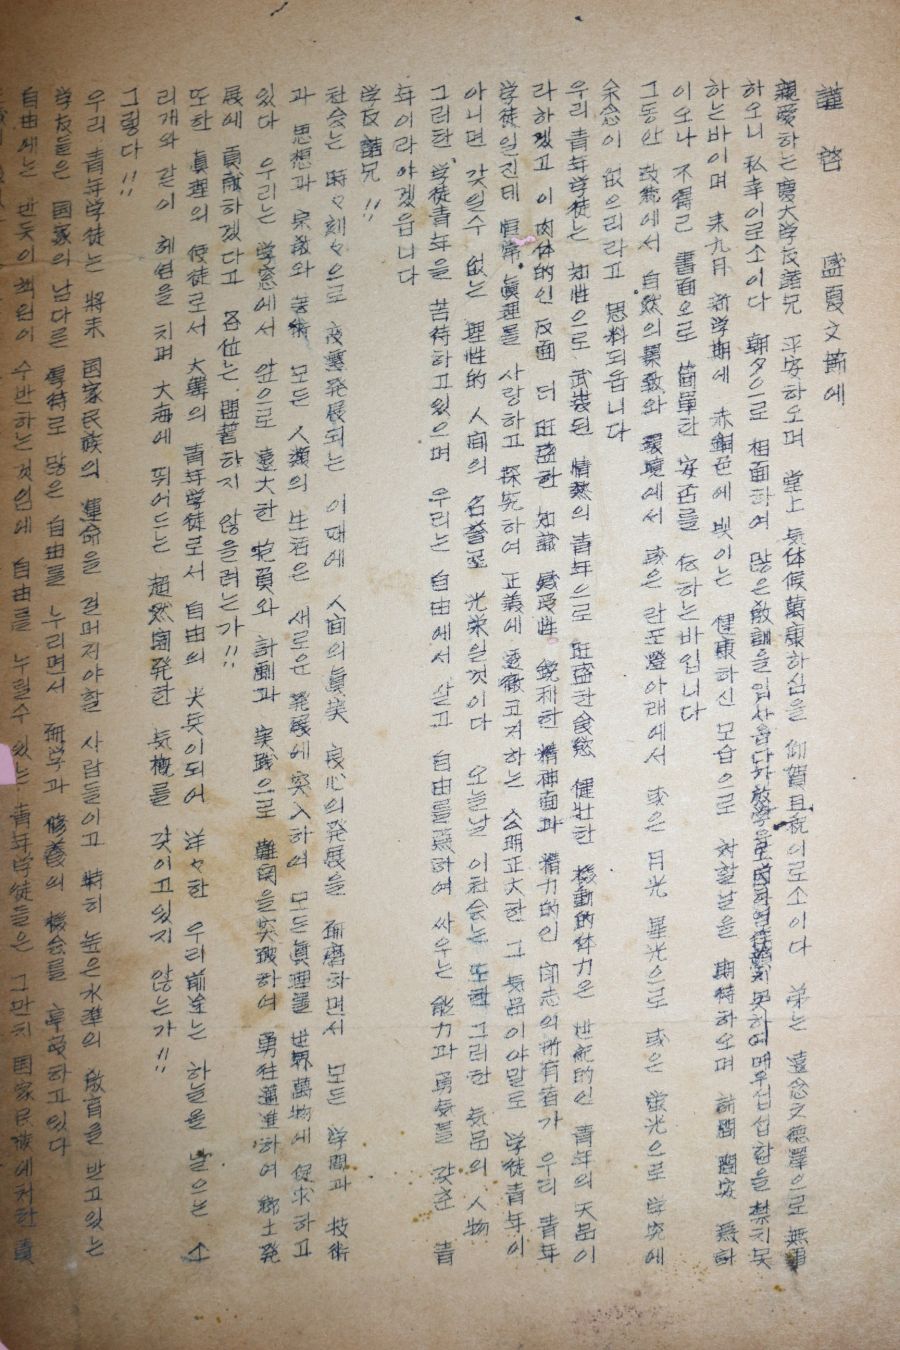 謹啓 盛夏文節에
親愛하는 慶大学友諸兄 平安하오며 堂上 気体候萬康하심을 仰賀且祝의로소이다 弟는 遠念之德澤으로 無事
하오니 私幸이로소이다 朝夕으로 相面하여 많은 敎訓을 입사옵다가 放學을 못하여 매우 섭섭함을 禁치못
하는바이며 末九月 新学期에 赤銅色에 빗이는 健康하신 모습으로 対할날을 期待하오며 問安
이오나 不得已 書面으로 簡單한 安否를 伝하는바입니다
그동안 故郷에서 自然의 景致와 環境에서 或은 란포燈아래에서 或은 月光 으로 或은 蛍光으로 学究에
余念이 없으리라고 思料되옵니다
우리 青年学徒는 知性으로 武装된 情熱의 青年으로 旺盛한 食慾 健壯한 機動的体力은 世紀的인 青年의 天品이
라하겠고 이 肉体的인 反面 더 旺盛한 知識 感受性 鋭利한 精神面과 精力的인 同志의 所有者가 우리 青年
学徒인진데 恒常 眞理를 사랑하고 探究하여 正義에 透徹코저하는 公明正大한 그 気品이야말로 学徒青年이
아니면 갖일수 없는 理性的 人間의 名誉로 光栄일것이다 오늘날 이社会는 또한 그러한 気品의 人物
그러한 学徒青年을 苦待하고있으며 우리는 自由에서 살고 自由를 하여 싸우는 能力과 勇気를 갖춘 青
年이라야겠읍니다
学友諸兄!!
社会는 時々刻々으로 変遷発展되는 이때에 人間의 眞実 良心의 発展을 하면서 모든 学問과 技術
과 思想과 宗敎와 芸術 모든 人類의 生活은 새로운 発展에 突入하여 모든 眞理를 世界萬物에 促求하고
있다 우리는 学窓에서 앞으로 遠大한 抱負와 計劃과 実践으로 難関을 突破하여 勇往邁進하여 郷土発
展에 貢献하겠다고 各位는 盟誓하지 않을려는가!!
또한 眞理의 使徒로서 大韓의 青年学徒로서 自由의 尖兵이되어 洋々한 우리前途는 하늘을 날으는 소
리개와 같이 헤염을 치며 大海에 뛰어드는 超然 発한 気概를 갖이고있지 않는가!!
그렇다!!
우리 青年学徒는 將来 国家民族의 運命을 걸머저야할 사람들이고 特히 높은水準의 敎育을 받고있는
学友들은 国家의 남다른 優待로 많은 自由를 누리면서 研学과 修養의 機会를 享受하고있다
自由에는 반듯이 책임이 수반하는것임에 自由를 누릴수 있는 青年学徒들은 그만치 国家民族에対한 責